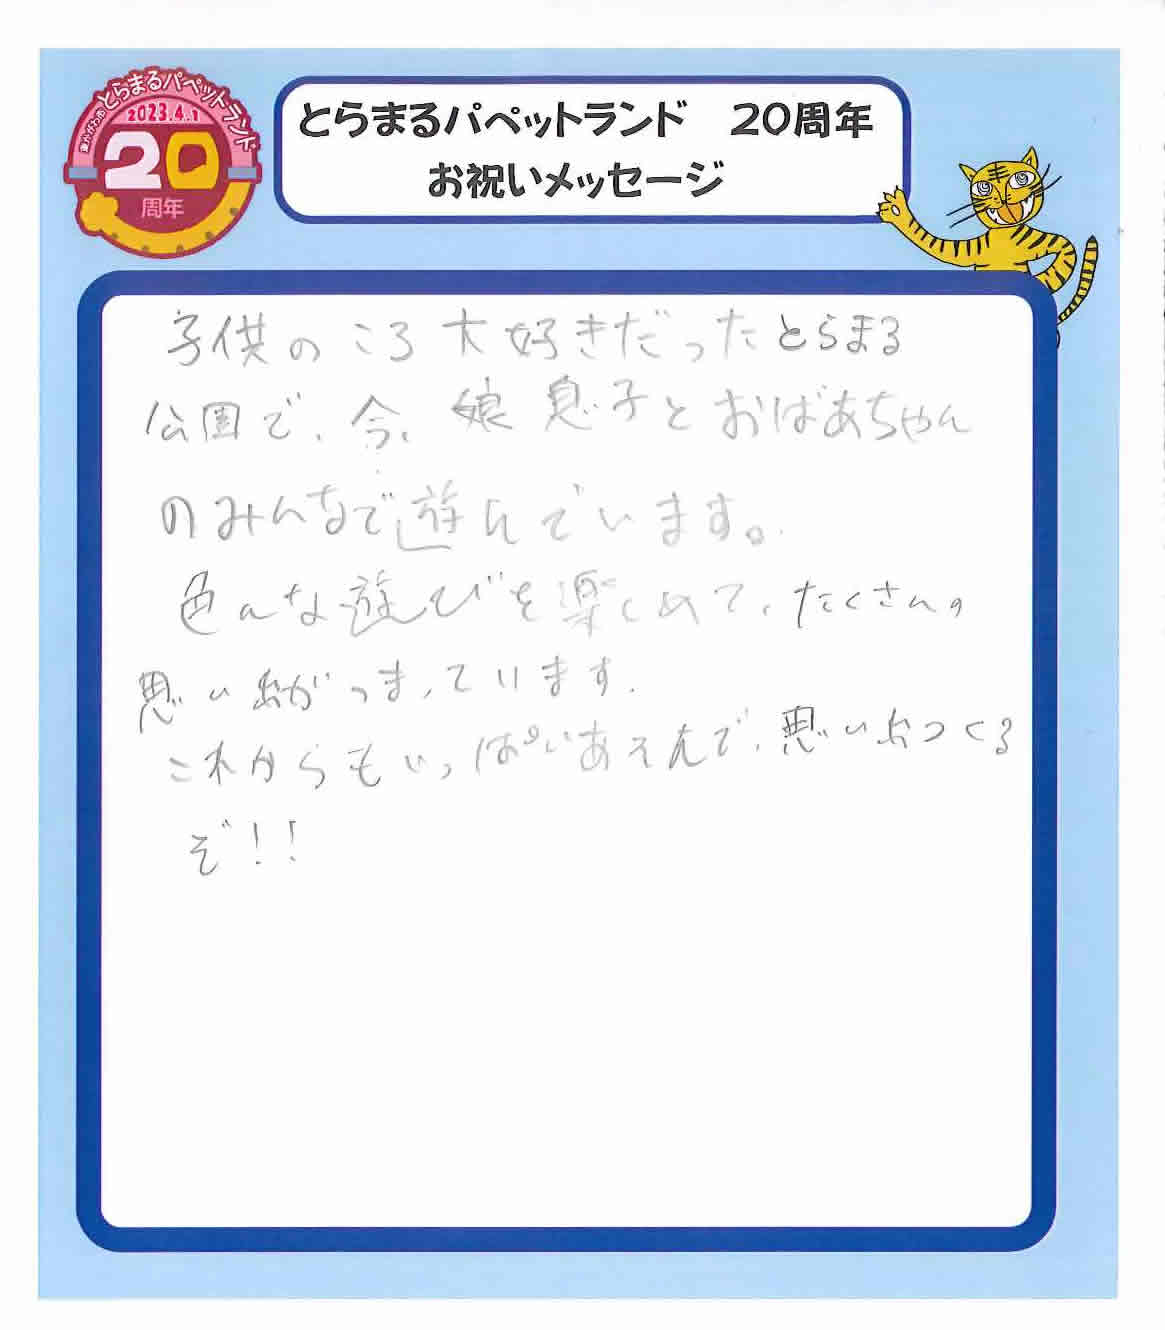 東かがわ市とらまるパペットランド
2023.4.1
20
周年
とらまるパペットランド 20周年
お祝いメッセージ
子供のころ大好きだったとらまる
公園で、今、娘息子とおばあちゃん
のみんなで遊んでいます。
色んな遊びを楽しめて、たくさんの
思い出がつまっています.
これからもいっぱいあそんで、思い出つくる
ぞ!!